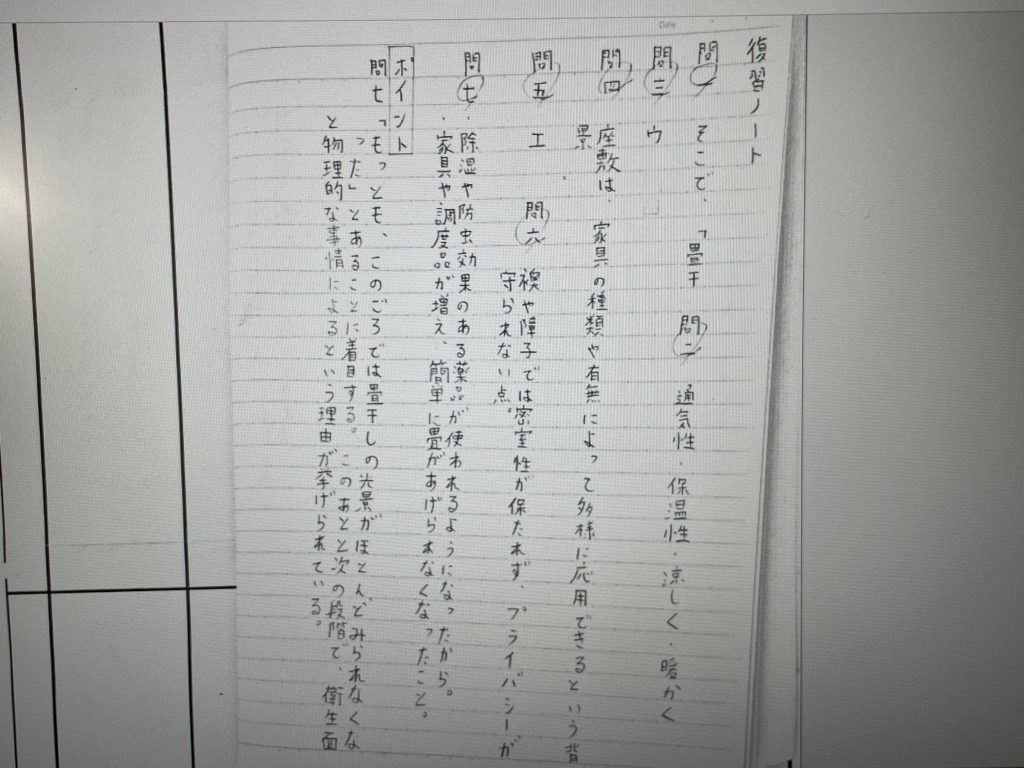 Date
復習ノート
問一 そこで、「畳干 問二 通気性・保温性・涼しく・暖かく
問三 ウ
問四 座敷は、家具の種類や有無によって多様に応用できるという背
景
問五 エ 問六 襖や障子では密室性が保たれず、プライバシーが
守られない点。
問七 ・除湿や防虫効果のある薬品が使われるようになったから。
・家具や調度品が増え、簡単に畳があげられなくなったこと。
ポイント
問七「もっとも、このごろでは畳干しの光景がほとんどみられなくな
った」とあることに着目する。このあとと次の段階で、衛生面
と物理的な事情によるという理由が挙げられている。